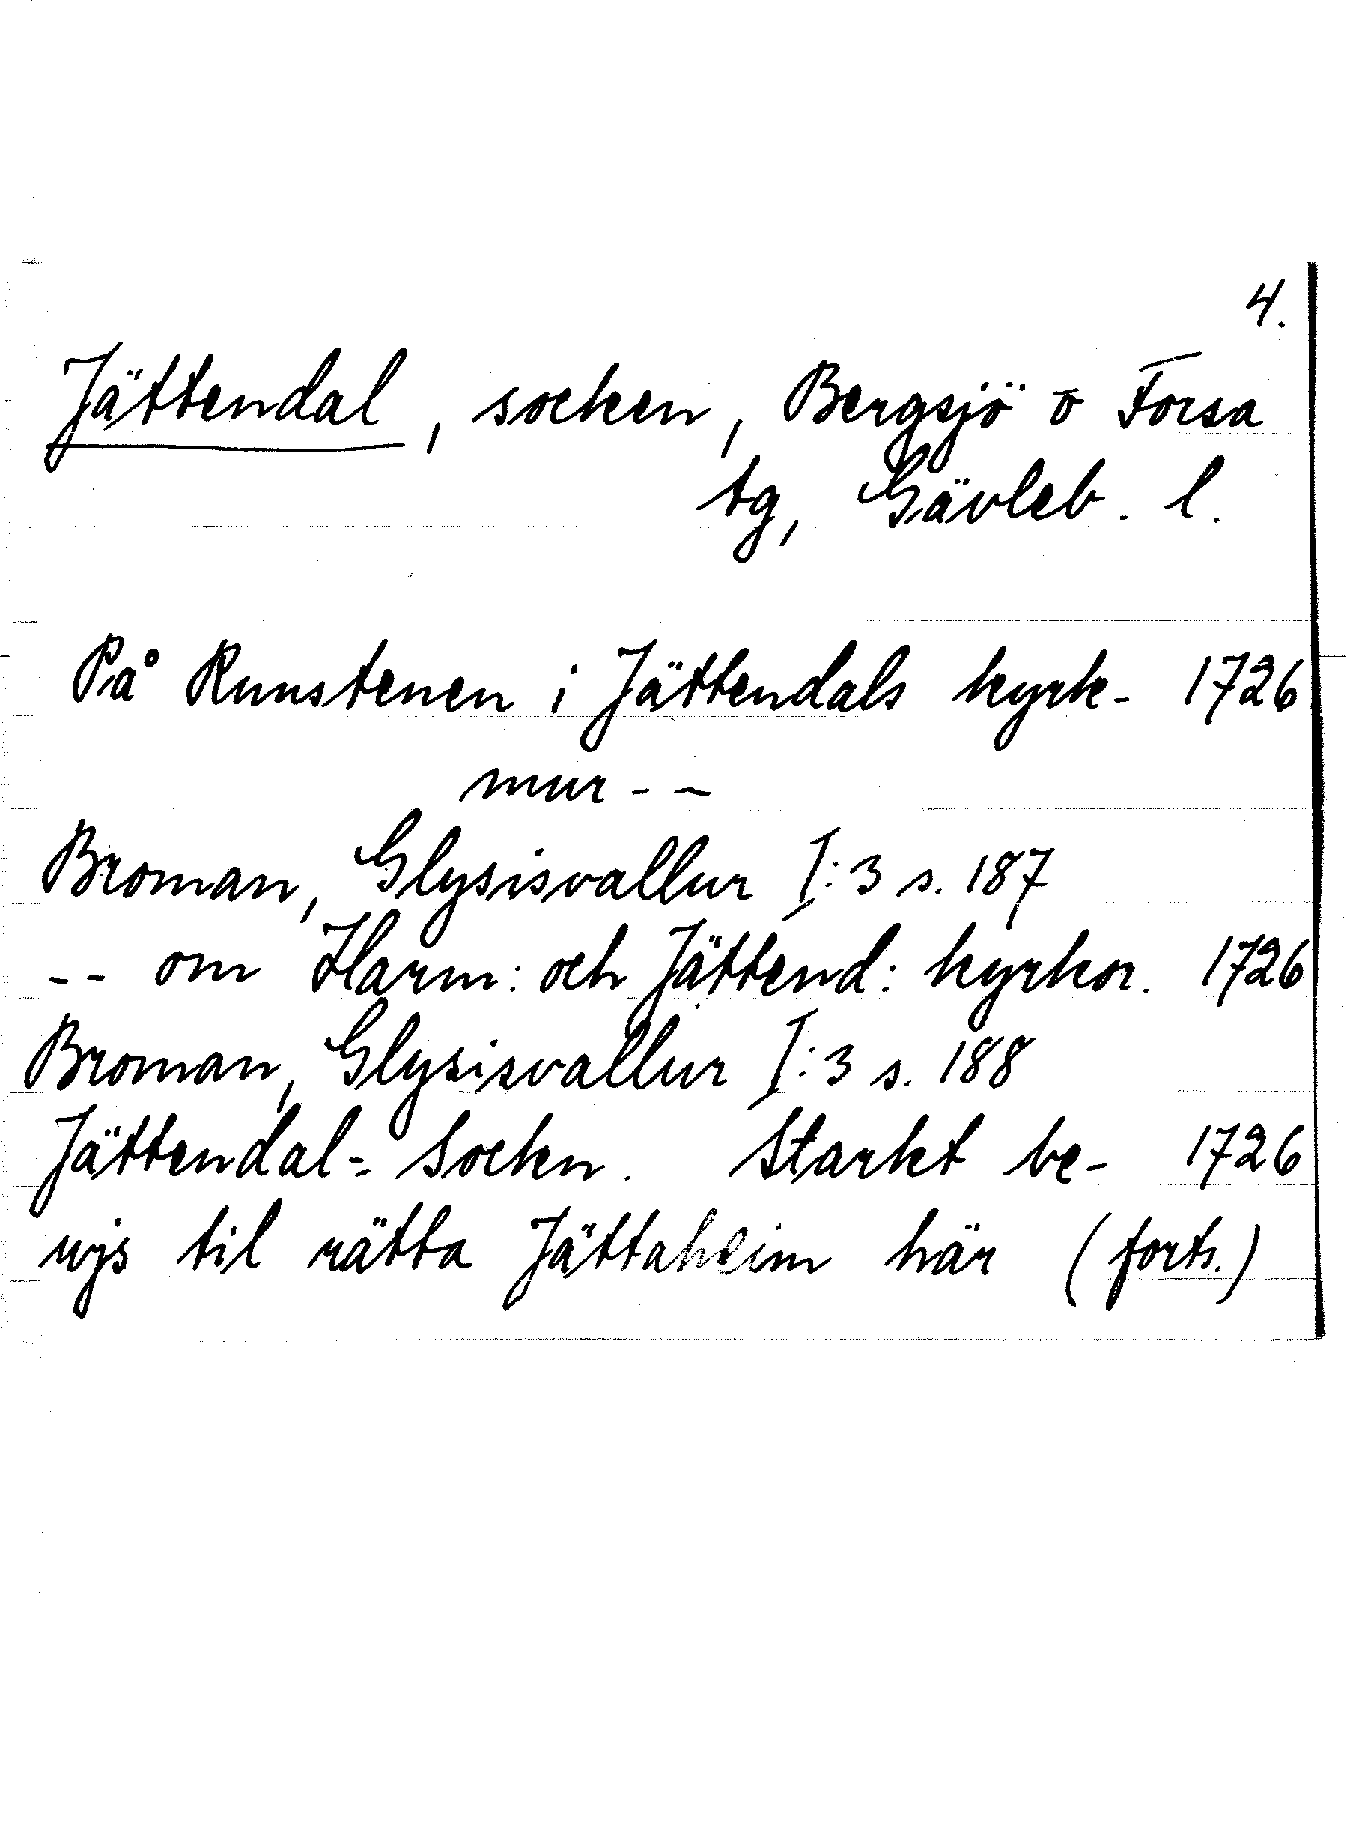 4.
Jättendal, socken, Bergsjö o Forsa
tg, Gävleb. l.
På Runstenen i Jättendals kyrk- 1726
mur - -
Broman, Glysisvallur I:3 s. 187
-- om Harm: och Jättend: kyrkor. 1726
Broman, Glysisvallur I:3 s. 188
Jättendal= Sockn. Starkt be- 1726
wjs til rätta Jättaheim här (forts.)